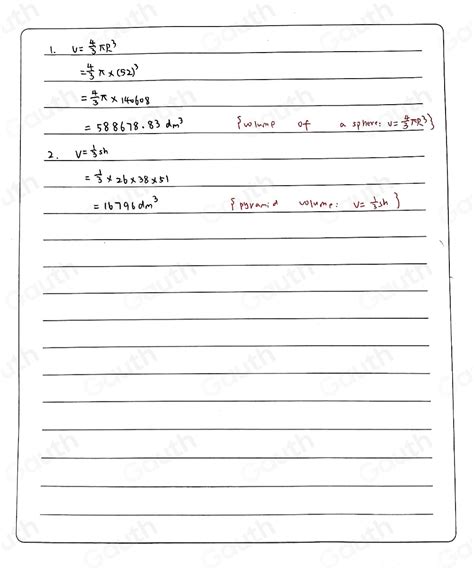 1. V = 4/3 πR³
= 4/3 π × (52)³
= 4/3 π × 140608
= 588678.83 dm³ {volume of a sphere: V = 4/3 πR³}
2. V = 1/3 sh
= 1/3 × 26 × 38 × 51
= 16796 dm³ {pyramid volume: V = 1/3 sh}
Gauth